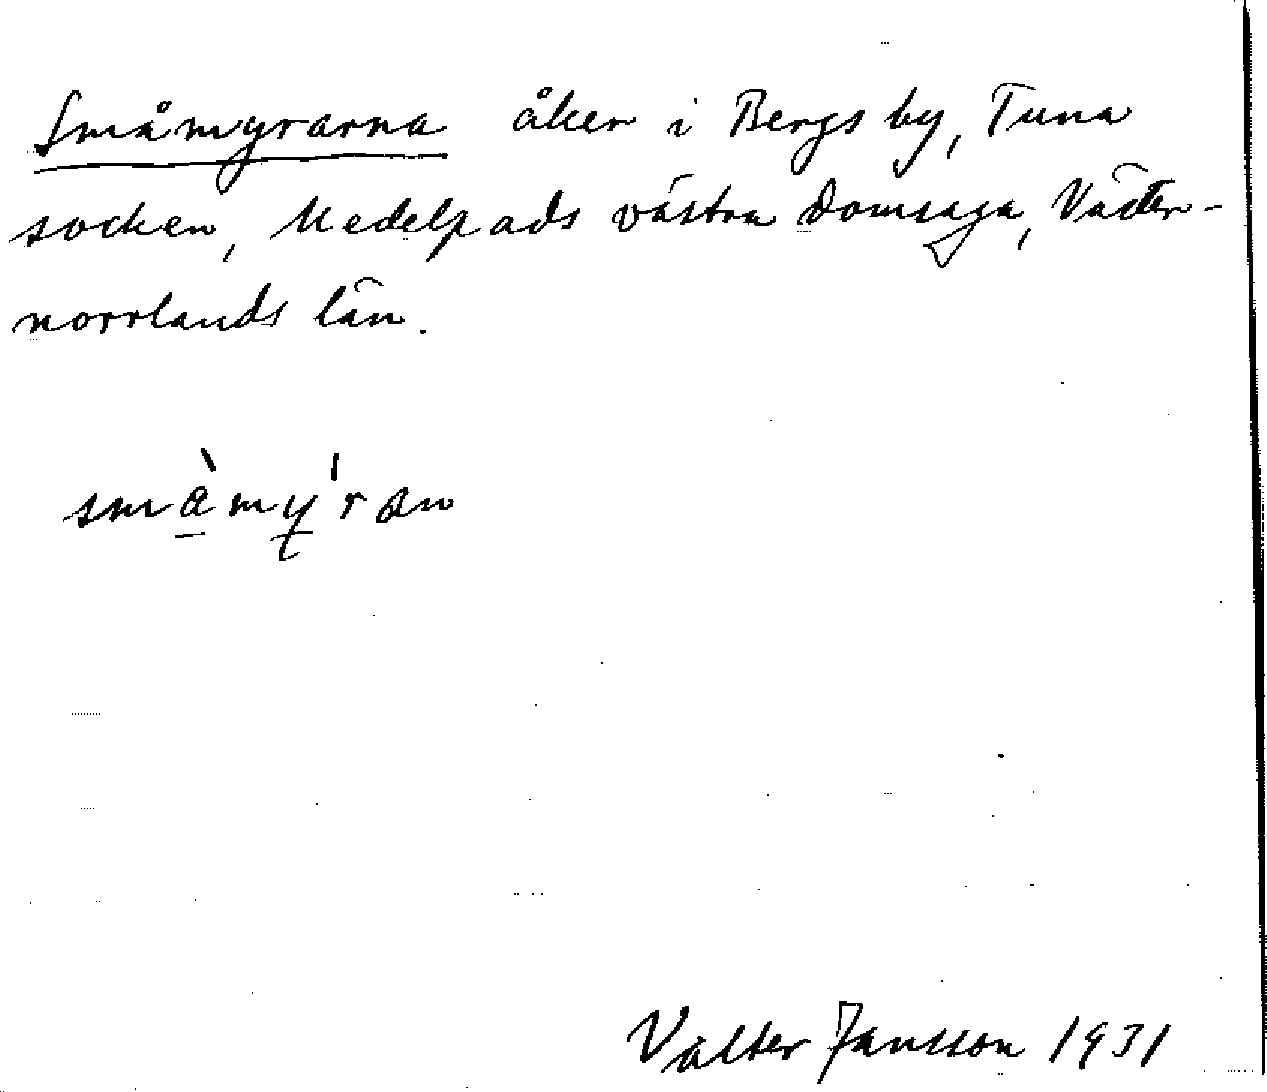 Småmyrarna åker i Bergs by, Tuna
socken, Medelpads västra domsaga, Väster-
norrlands län.
smàmy̍ran
Valter Jansson 1931